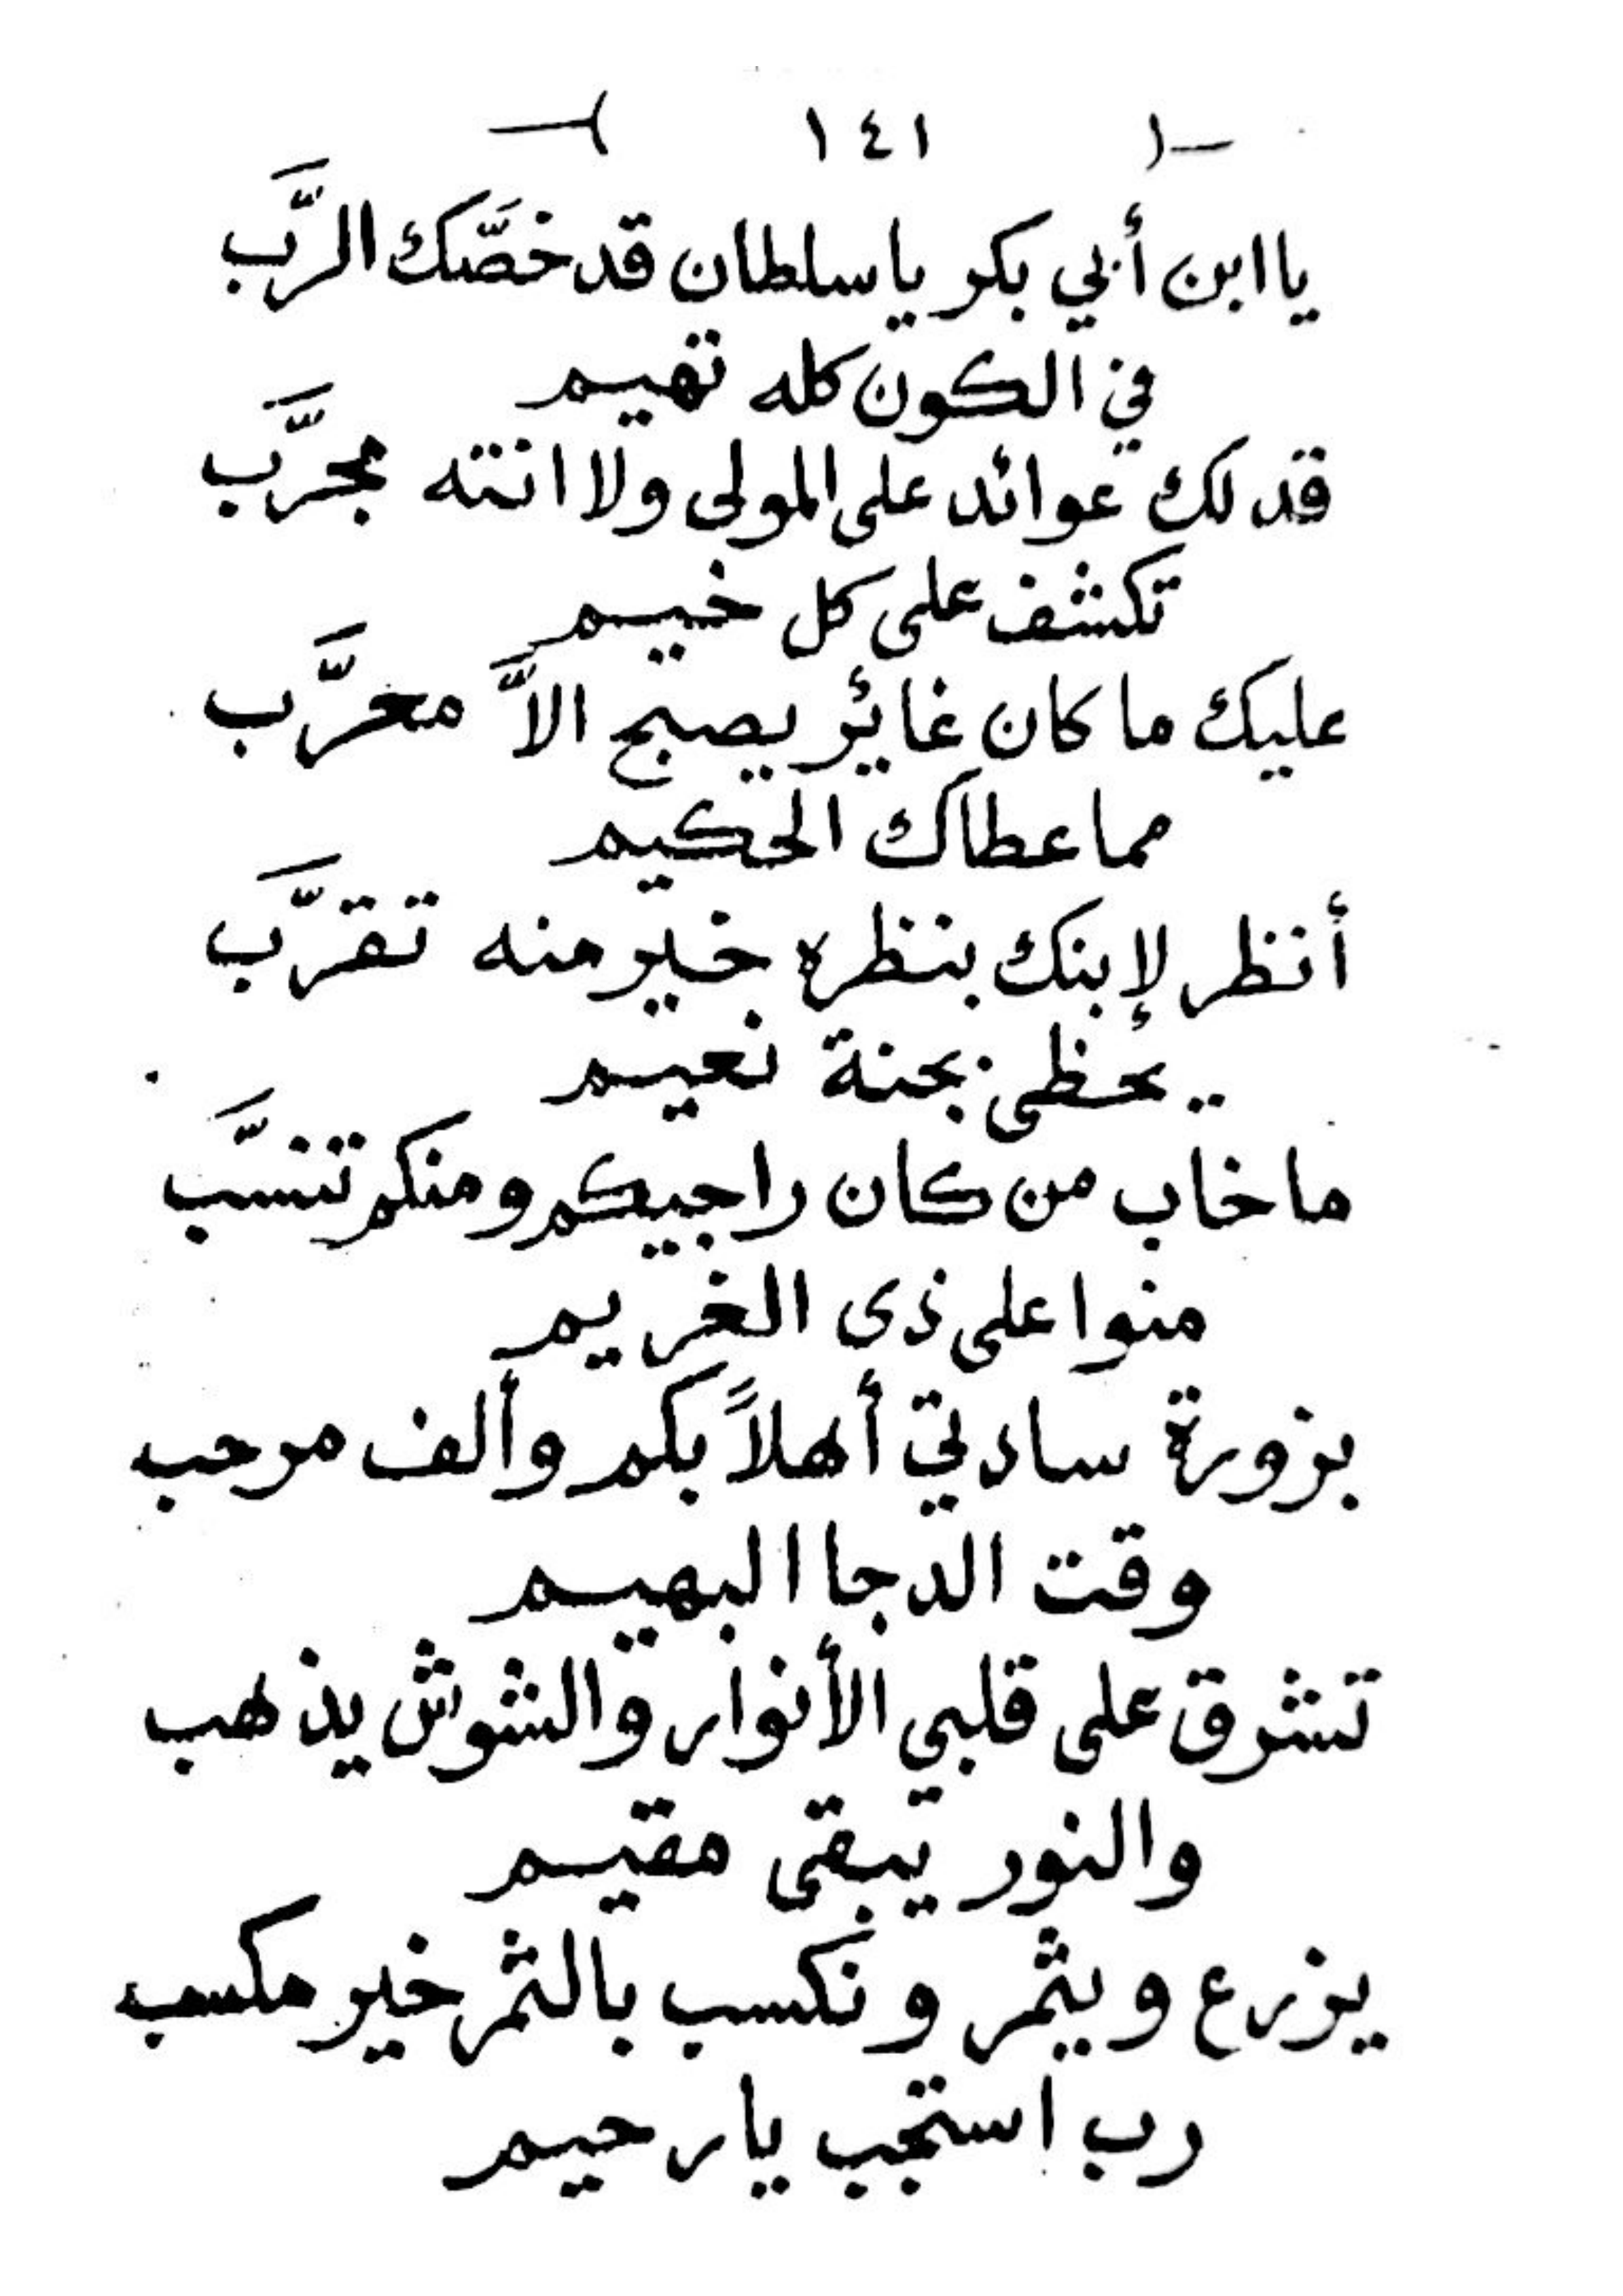 -( ١٤١ )-
يا ابن أبي بكر يا سلطان قد خصَّك الرَّب
في الكون كله تهيم
قد لك عوائد على المولى ولا انته مجرَّب
تكشف على كل خيم
عليك ما كان غائر يصبح الاَّ معرَّب
مما عطاك الحكيم
أنظر لإبنك بنظره خير منه تقرَّب
يحظى بجنة نعيم
ما خاب من كان راجيكم ومنكم تنسَّب
منوا على ذى الغريم
بزورة سادتي أهلاً بكم وألف مرحب
وقت الدجا البهيم
تشرق على قلبي الأنوار والشوش يذهب
والنور يبقى مقيم
يزرع ويثمر ونكسب بالثمر خير مكسب
رب استجب يا رحيم